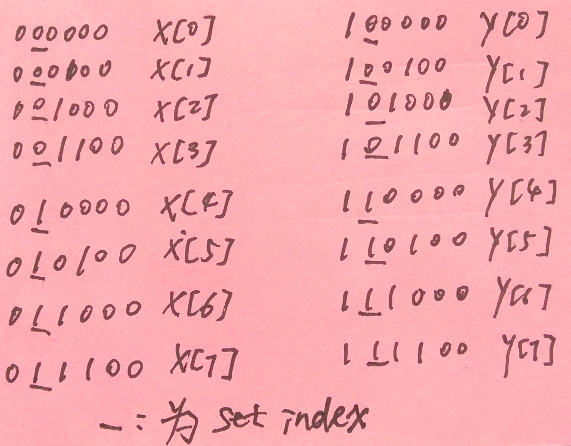 000000 X[0] 100000 Y[0]
000100 X[1] 100100 Y[1]
001000 X[2] 101000 Y[2]
001100 X[3] 101100 Y[3]
010000 X[4] 110000 Y[4]
010100 X[5] 110100 Y[5]
011000 X[6] 111000 Y[6]
011100 X[7] 111100 Y[7]
_: 为 set index